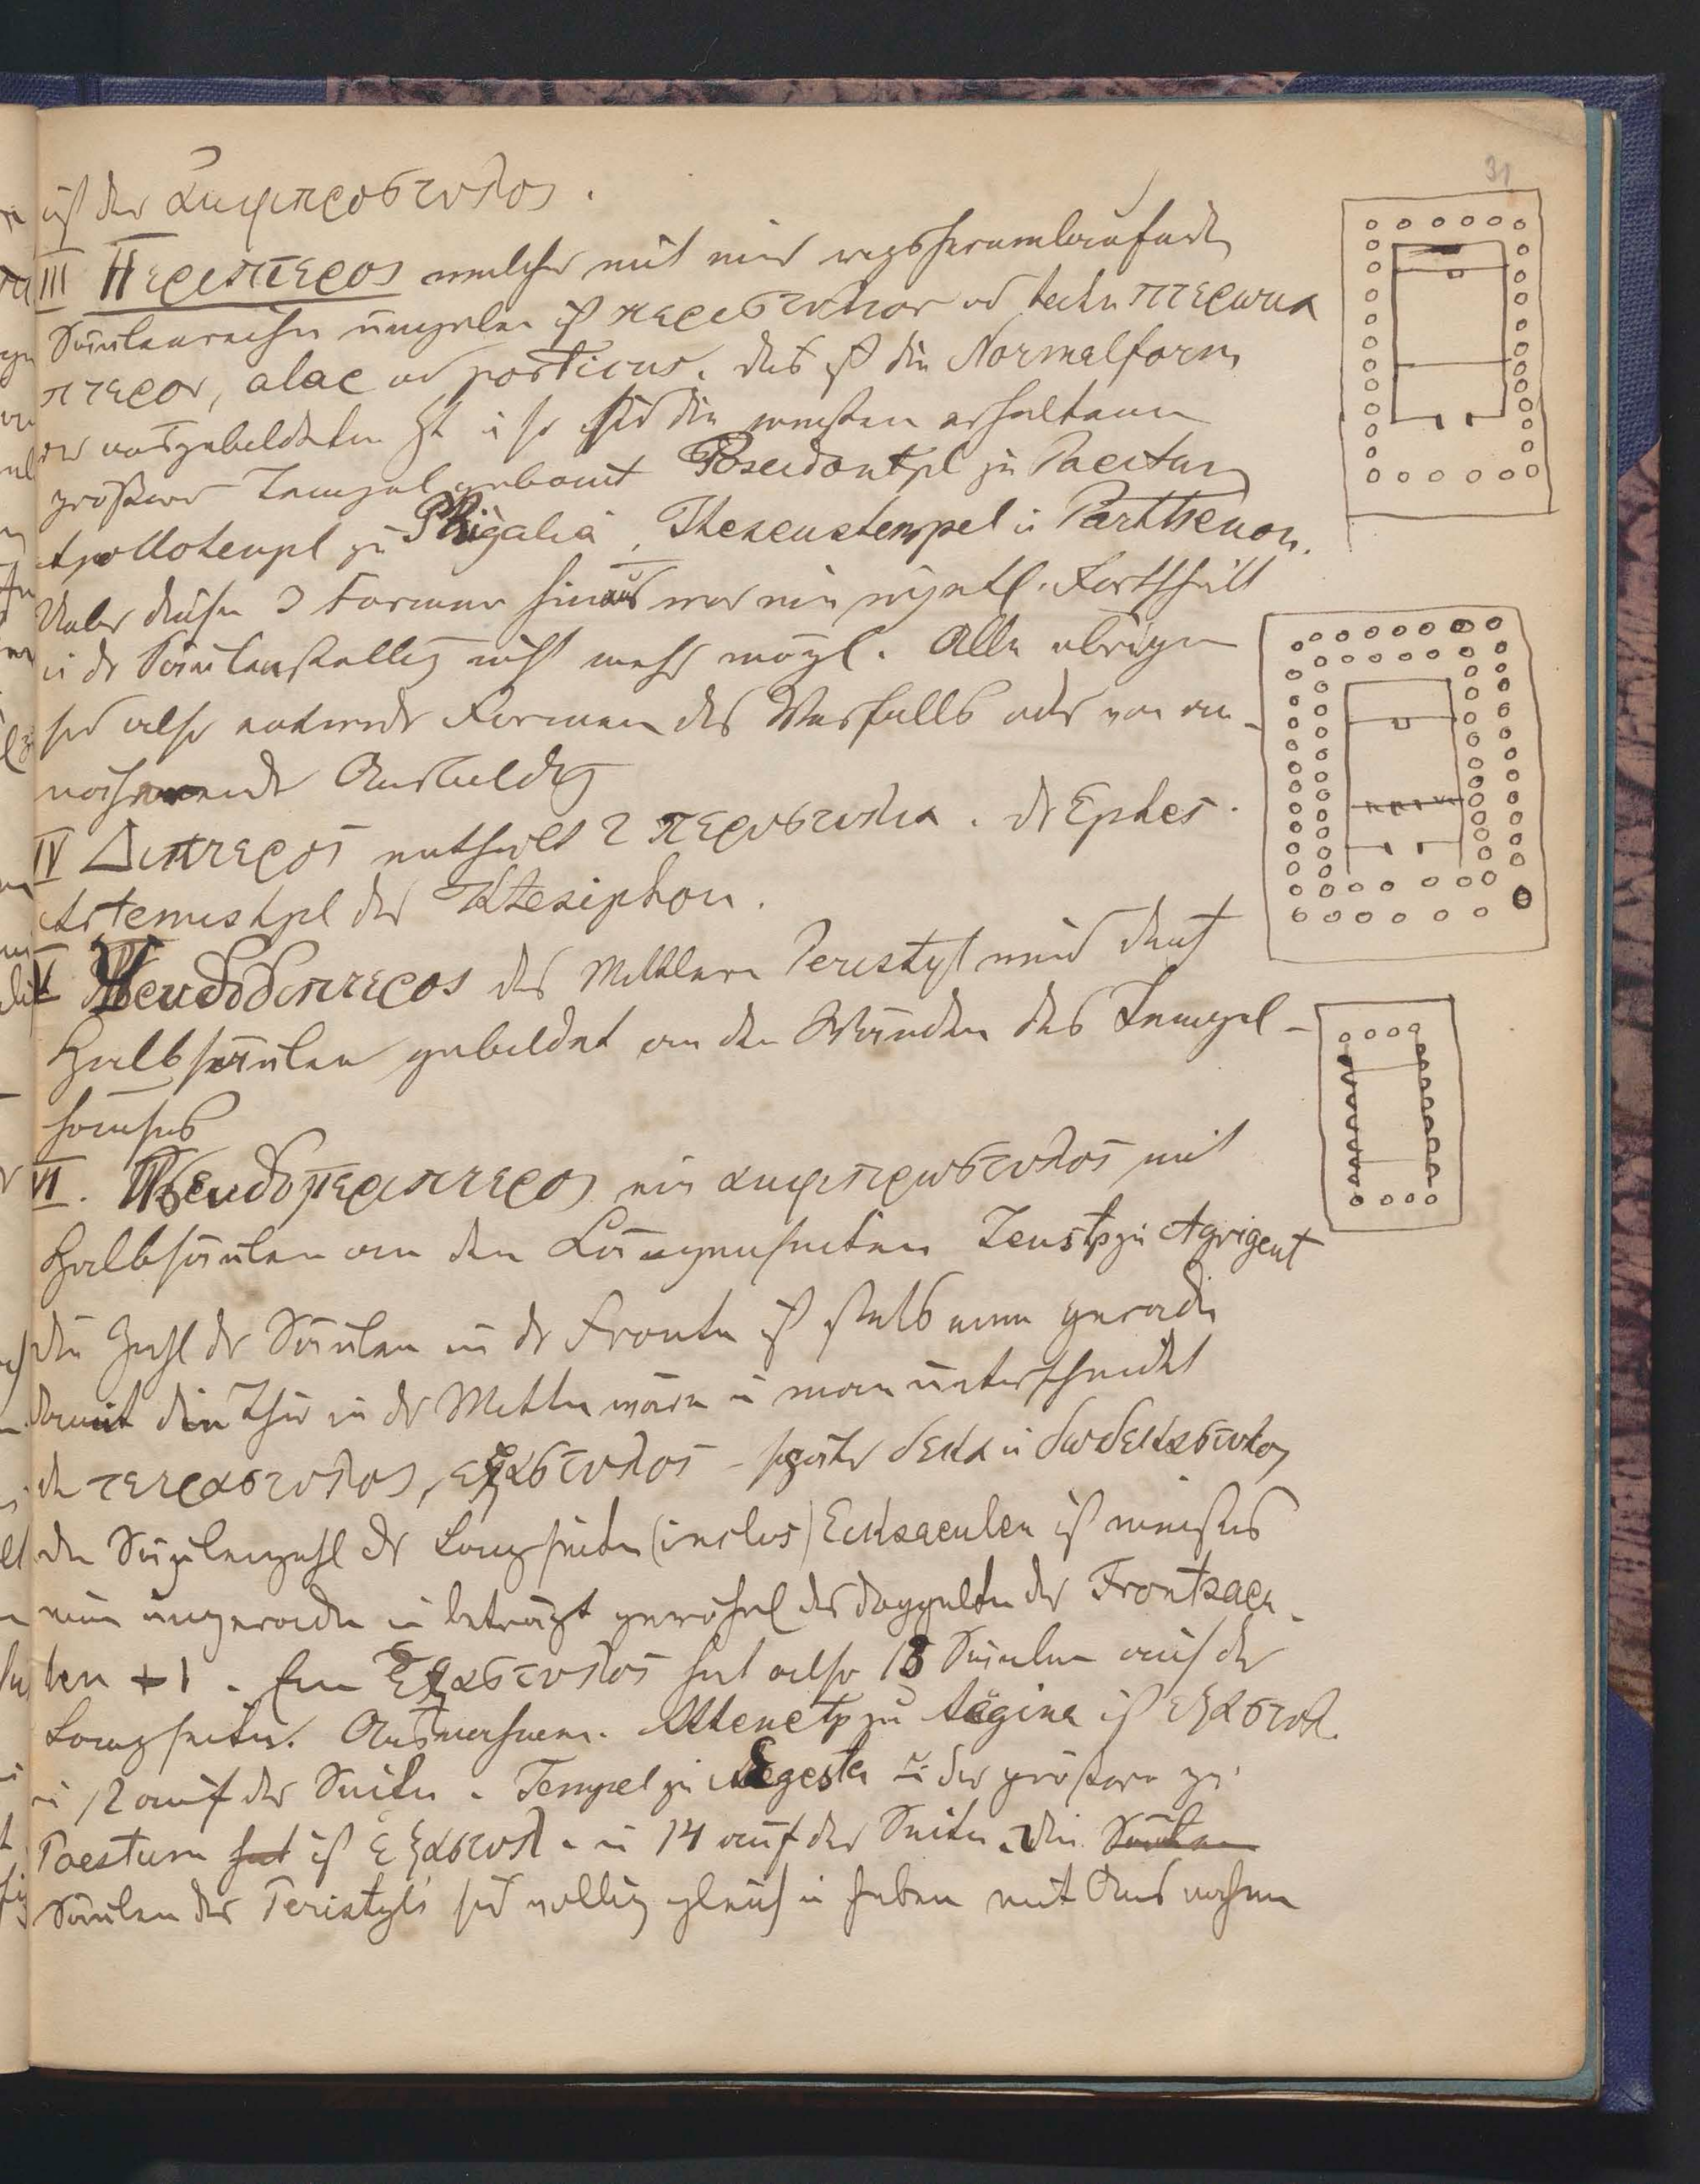 31
ist der αμφιπροστυλος.
III Περιπτερος welcher mit einer ringsherumlaufenden
Säulenreihe umgeben ist περιστυλιον od techn πτερωμα
πτερον, alae od porticus. das ist die Normalform
der ausgebildeten Zt u so sind die meisten erhaltenen
größern Tempel gebaut Poseidontpl zu Paestum
Apollotempl zu Phigalia, Theseustempel u Parthenon.
Ueber diese 3 Formen hinaus war ein eigentl. Fortschritt
in dr Säulenstellg nicht mehr mögl. Alle übrigen
sind also entwedr Formen des Verfalls oder von an-
nähernde Ausbildg
IV Διπτερος enthält 2 περιστυλια. dr Ephes.
Artemistpl des Ktesiphon.
V Ψευδοδιπτερος das Mittlere Peristyl wird durch
Halbsäulen gebildet an den Wänden des Tempel-
hauses
VI. Ψευδοπεριπτερος ein αμφιπρωστυλος mit
Halbsäulen an den Längenseiten Zeustp zu Agrigent
die Zahl der Säulen in dr Fronte ist stets eine gerade
damit die Thür in dr Mitte wäre u man unterscheidet
den τετραστυλος, εξαστυλος - später δεκα u δωδεκαστυλος
die Säulenzahl dr Langseiten (inclus) Ecksaeulen ist meistens
eine ungerade u beträgt gewöhnl das doppelte der Frontsaeu-
len +1. Ein Εξαστυλος hat also 13 Säulen auf der
Langseite. Ausnahmen. Athenetp zu Aegina ist εξαστυλ.
u 12 auf der Seite. Tempel zu Segesta u der größere zu
Paestum hat ist εξαστυλ. u 14 auf der Seite. Die Säulen
Säulen des Peristyls sind völlig gleich u haben mit Ausnahme